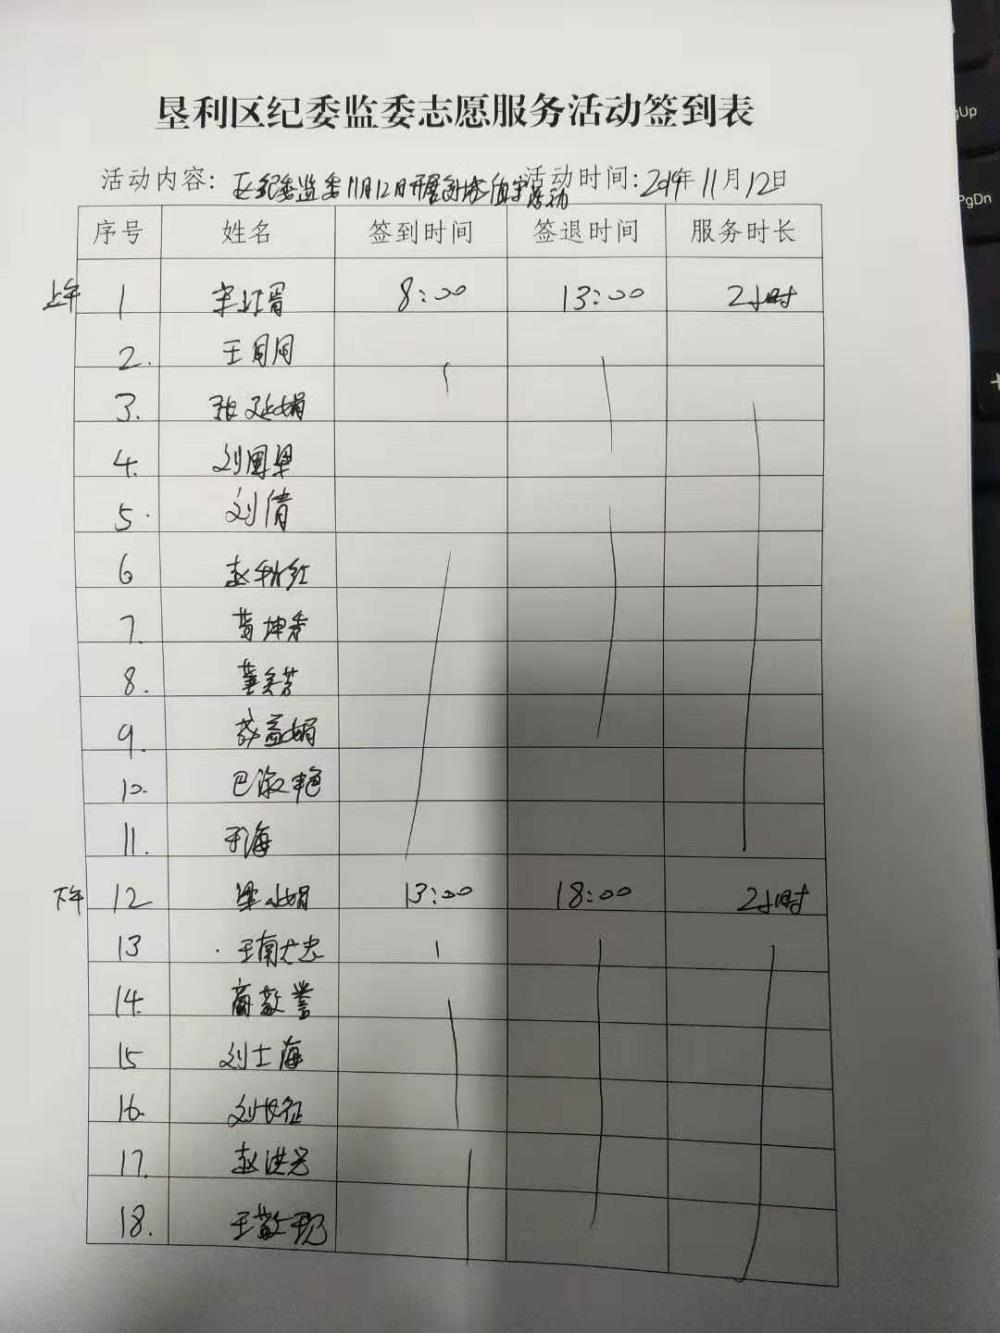 垦利区纪委监委志愿服务活动签到表
活动内容: 区纪委监委11月12日开展 活动 活动时间: 2019年11月12日
序号 姓名 签到时间 签退时间 服务时长
上午 1 8:00 13:00 2小时
2. 王周周
3. 张延娟
4. 刘国
5. 刘倩
6 赵秋红
7. 坤秀
8. 董美芳
9. 益娟
10. 巴淑艳
11. 于海
下午 12 梁娟 13:00 18:00 2小时
13 王南大忠
14. 高敬
15 刘士海
16. 刘长征
17. 赵洪
18. 王敬
gUp
PgDn